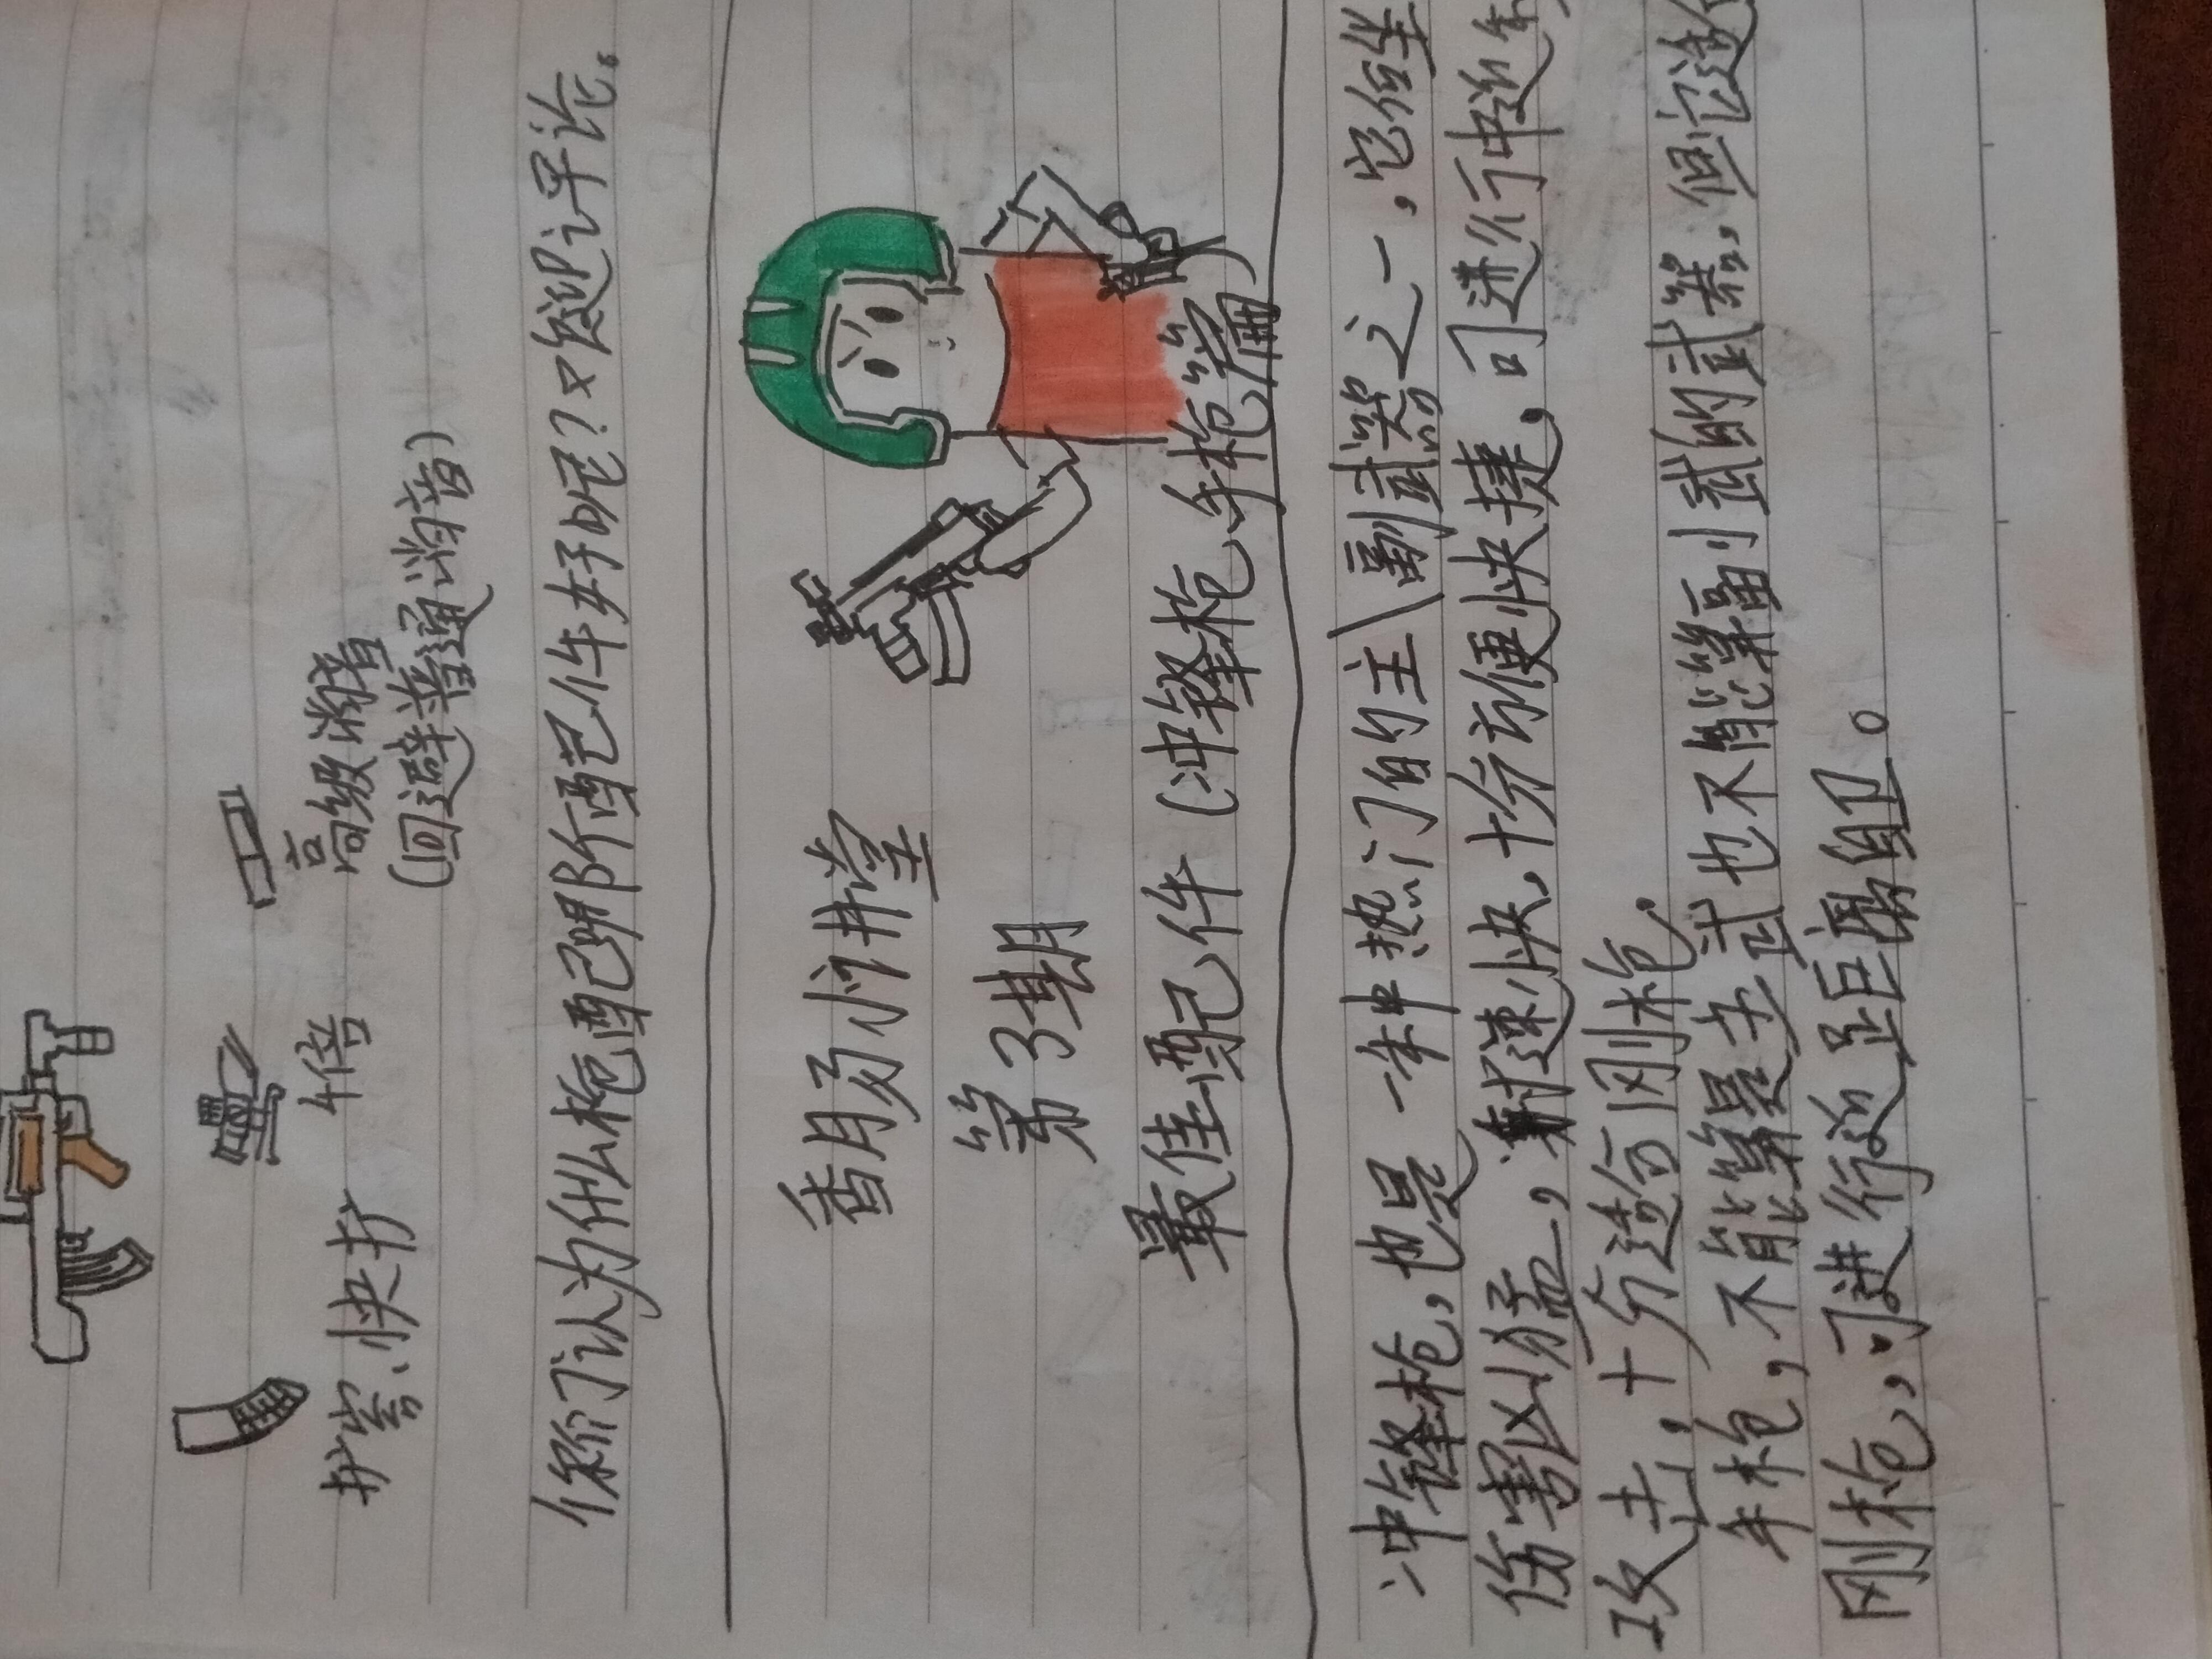 扩容、快扩 4倍 高级消音
(回避普通消音)
你们认为什么枪配哪个配件好呢?欢迎评论。
香肠小讲堂
第3期
最佳配件(冲锋枪、手枪篇
冲锋枪,也是一种热门的主\副武器之一,它
伤害以猛,射速快、十分方便快捷,可进行中近
攻击,十分适合刚枪。
手枪,不能算是主武也不能算副武的武器。但它
刚枪,可进行近距离自卫。